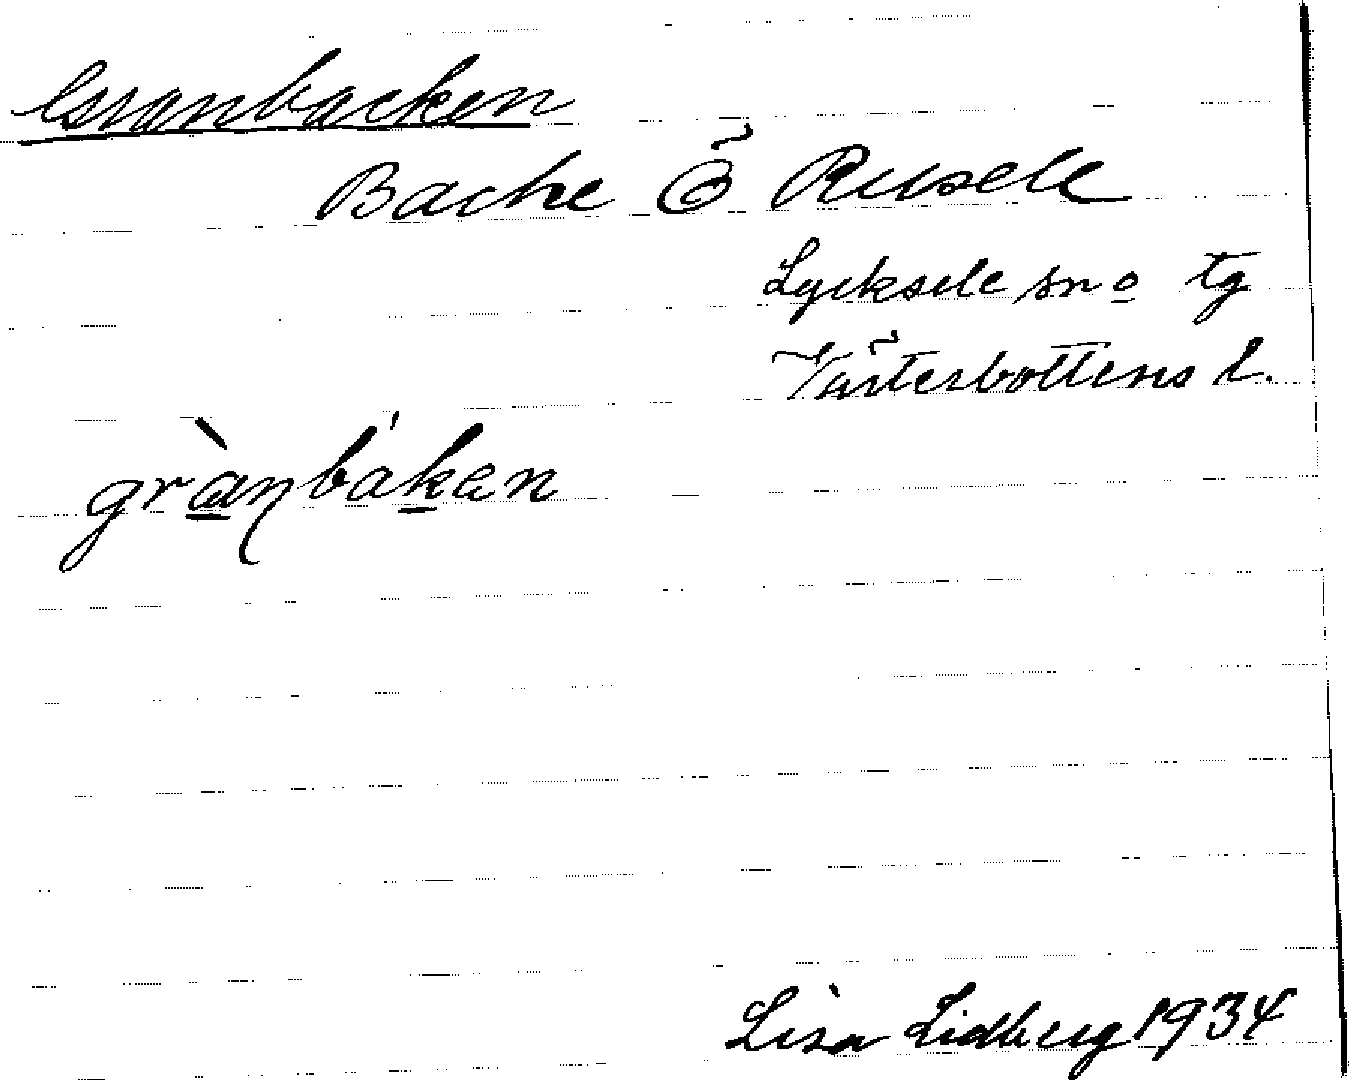 Granbacken
Backe Ö Rusele
Lycksele sn o tg
Västerbottens l.
grànbákan
Lisa Lidberg 1934